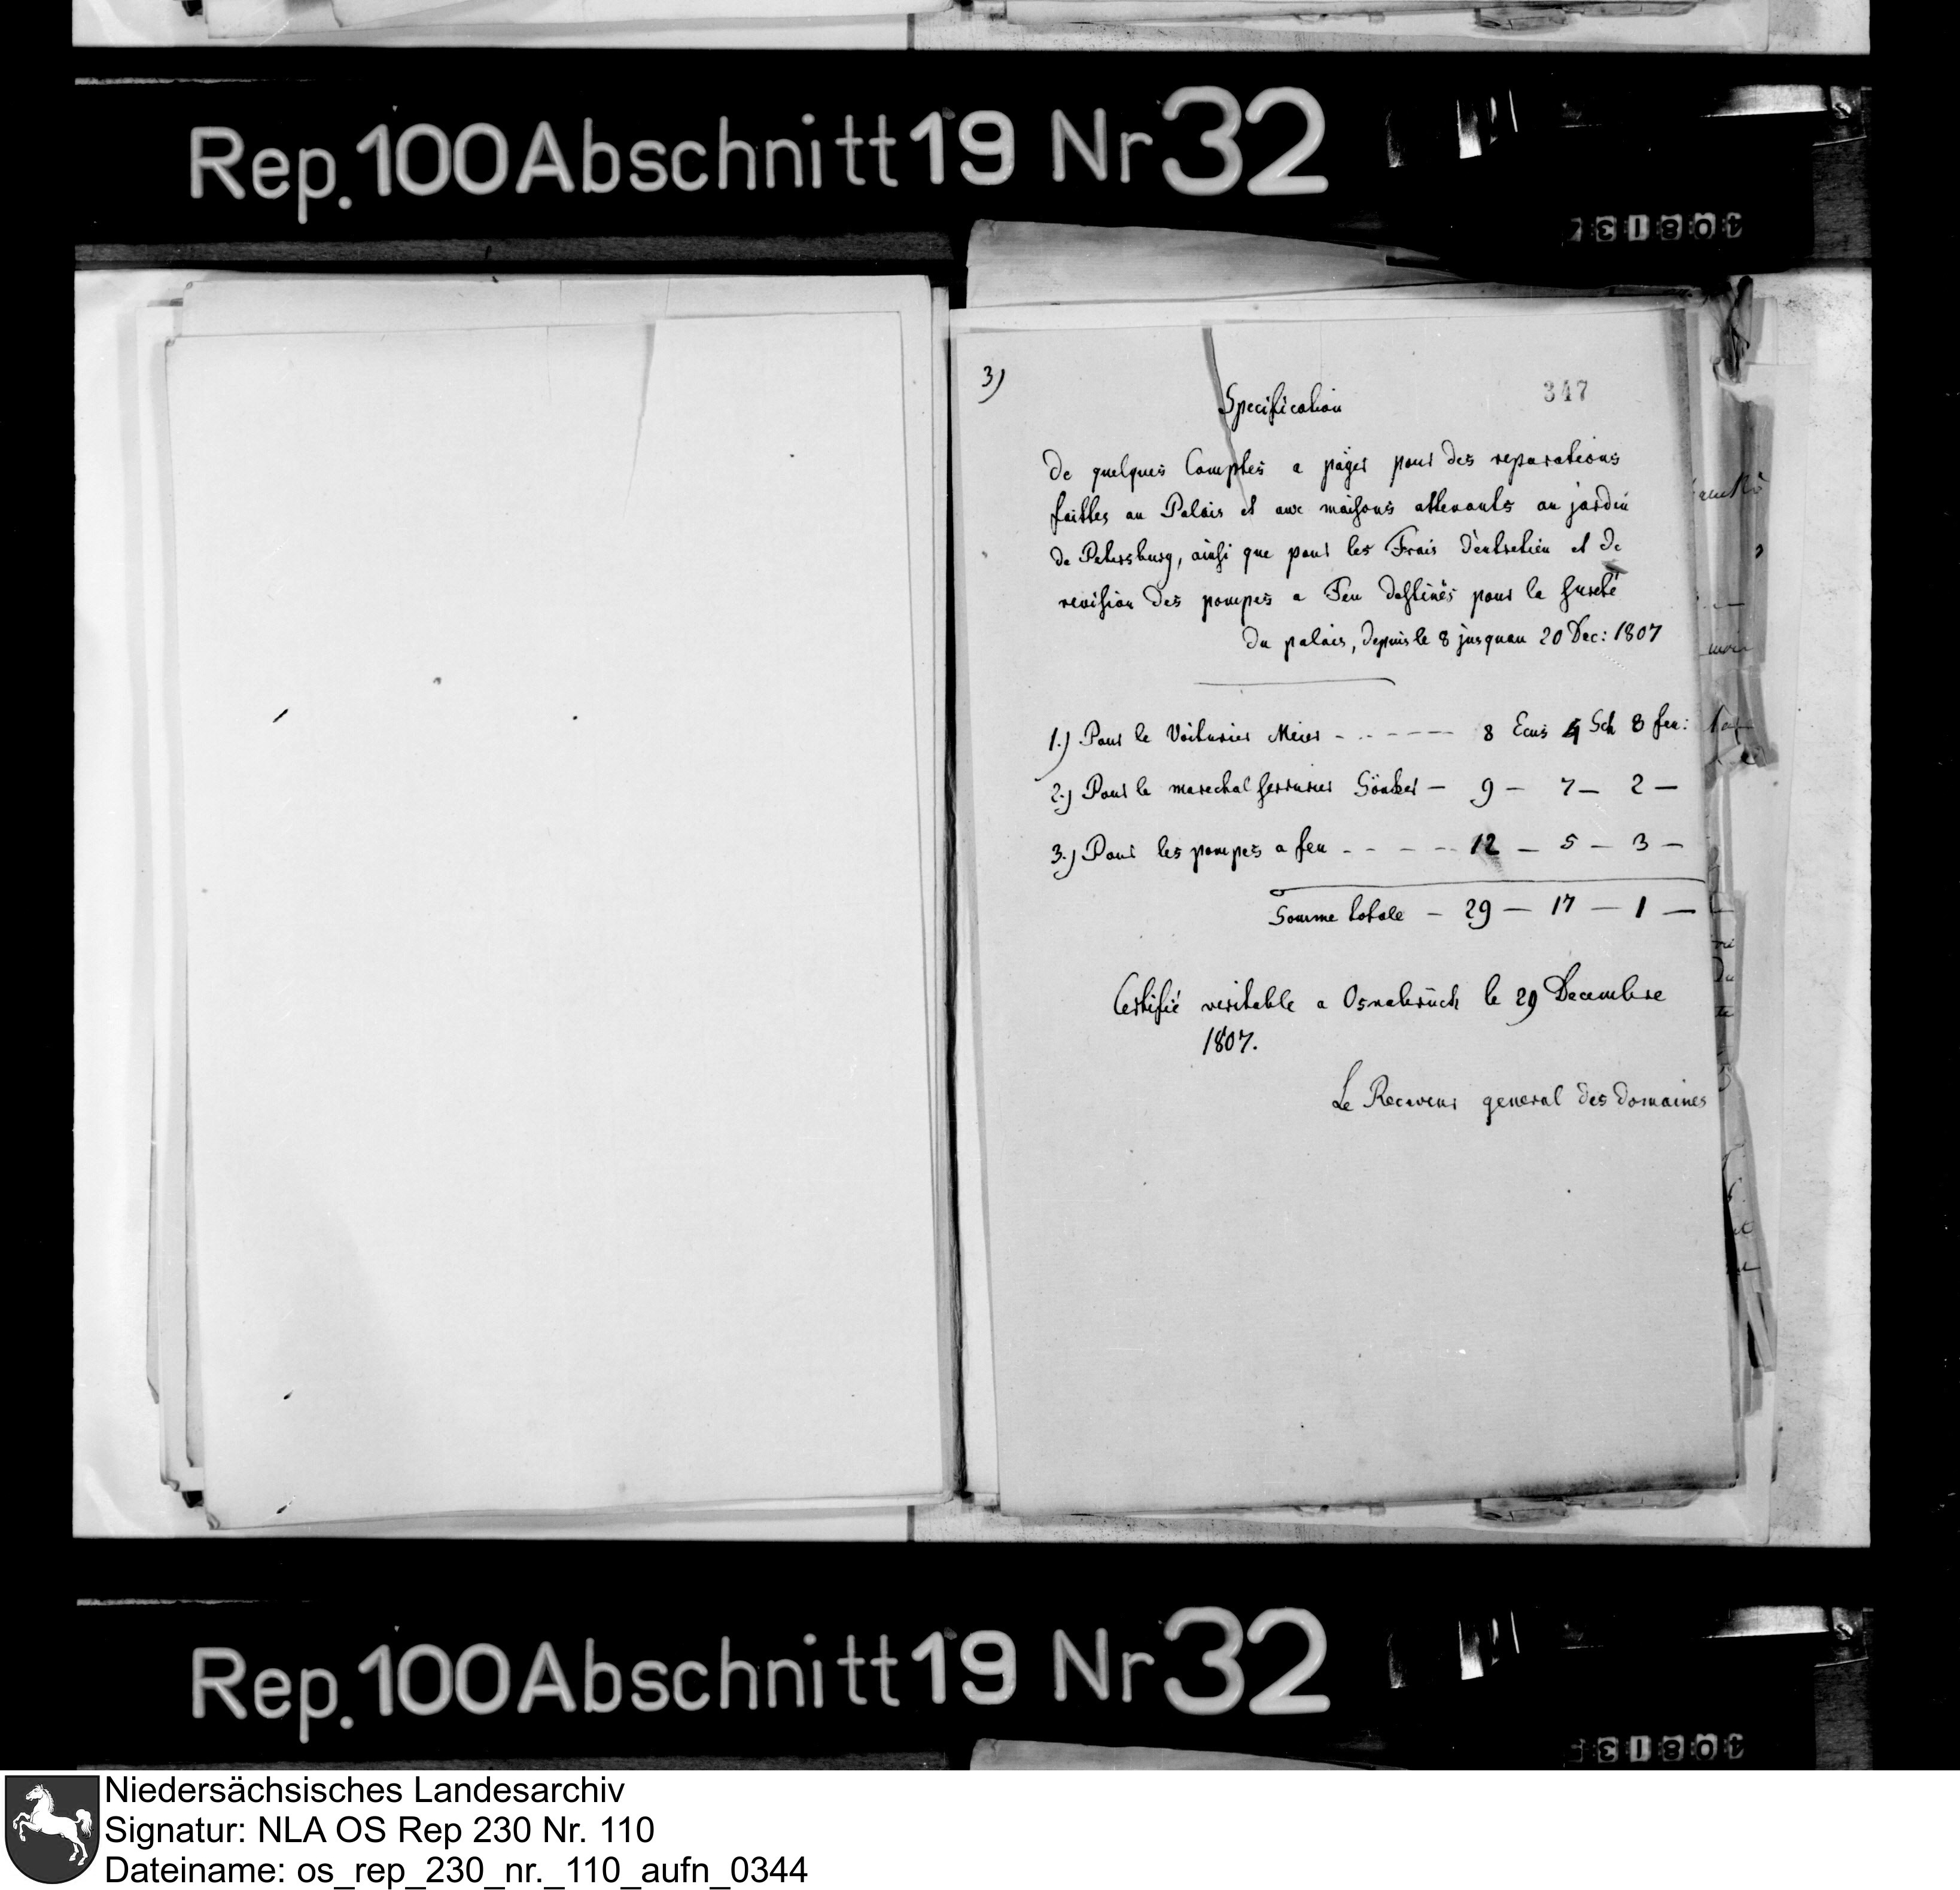 Rep. 100 Abschnitt 19 Nr 32
3)
347
Specification
De quelques Comptes a päger pour des reparations
faittes au Palais et aux maisons attenants au jardin
de Petersburg, ainsi que pour les Frais d'entretien et de
revision des pompes a Feu destinés pour la sureté
du palais, depuis le 8 jusquau 20 Dec: 1807
1.) Pour le Voiturier Meier - - - - - - 8 Ecus 4 Sch 8 fen:
2.) Pour le marechal ferrurier - 9 - 7 - 2 -
3.) Pour les pompes a feu - - - - - 12 - 5 - 3 -
Somme totale - 29 - 17 - 1 -
Certifié veritable a Osnabrück le 29 Decembre
1807.
Le Receveur general des domaines
Rep. 100 Abschnitt 19 Nr 32
Niedersächsisches Landesarchiv
Signatur: NLA OS Rep 230 Nr. 110
Dateiname: os_rep_230_nr._110_aufn_0344